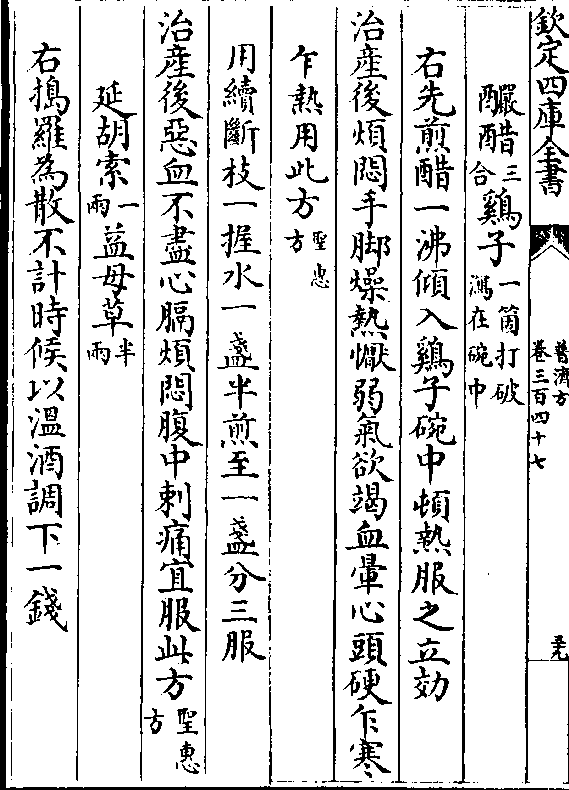 欽定四庫全書
普濟方
卷三百四十七
五九
釅醋三合 鷄子一箇打破瀉在碗中
右先煎醋一沸傾入鷄子碗中頓熱服之立効
治産後煩悶手脚燥熱㦬弱氣欲竭血暈心頭硬乍寒
乍熱用此方聖惠方
用續斷枝一握水一盞半煎至一盞分三服
治産後惡血不盡心膈煩悶腹中刺痛宜服此方聖惠方
延胡索一兩益母草半兩
右搗羅為散不計時候以温酒調下一錢